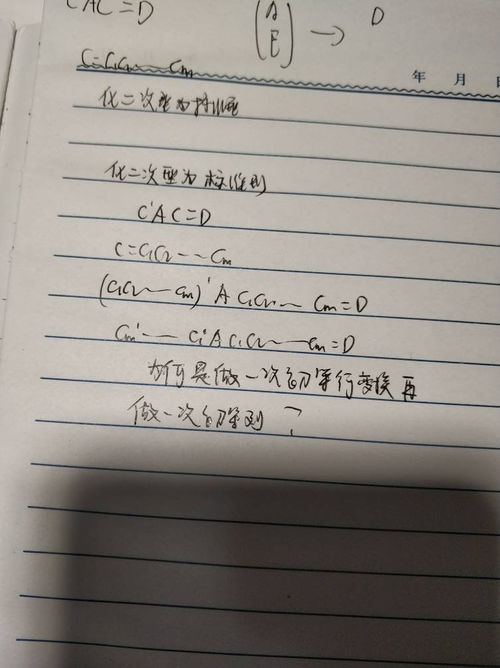 C'AC=D
(A
E) → D
C=C₁C₂……Cm
年 月 日
化二次型为标准型
化二次型为标准型
C'AC=D
C=C₁C₂……Cm
(C₁C₂……Cm)'AC₁C₂……Cm=D
Cm'……C₁'AC₁C₂……Cm=D
为何是做一次初等行变换再
做一次初等列?